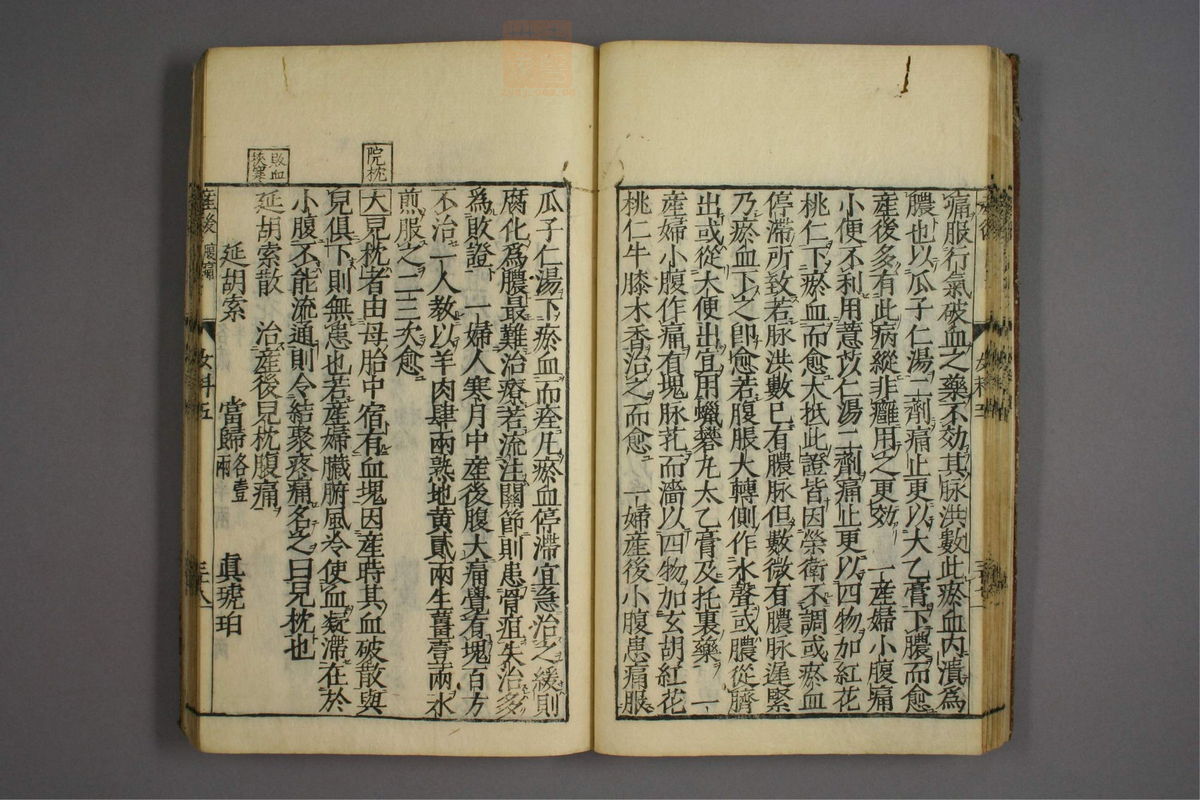 痛服行氣破血之藥不効其脉洪數此瘀血内潰爲
膿也以瓜子仁湯二劑痛止更以太乙膏下膿而愈
産後多有此病縱非癰用之更効 一産婦小腹痛
小便不利用薏苡仁湯二劑痛止更以四物加紅花
桃仁下瘀血而愈大抵此證皆因榮衛不調或瘀血
停滯所致若脉洪數已有膿脉但數微有膿脉遲緊
乃瘀血下之即愈若腹脹大轉側作水聲或膿從臍
出或從大便出宜用蠟礬丸太乙膏及托裏藥 一
産婦小腹作痛有塊脉芤而濇以四物加玄胡紅花
桃仁牛膝木香治之而愈 一婦産後小腹患痛服
瓜子仁湯下瘀血而痊凡瘀血停滯宜急治之緩則
腐化爲膿最難治療若流注關節則患骨疽失治多
爲敗證 一婦人寒月中産後腹大痛覺有塊百方
不治一人教以羊肉肆兩熟地黄貳兩生薑壹兩水
煎服之二三次愈
兒枕
大兒枕者由母胎中宿有血塊因産時其血破散與
兒俱下則無患也若産婦臟腑風冷使血凝滯在於
小腹不能流通則令結聚疼痛名之曰兒枕也
敗血
挾寒
延胡索散 治産後兒枕腹痛
延胡索 當歸各壹兩 眞琥珀
産後 腹痛 女科五 三十八